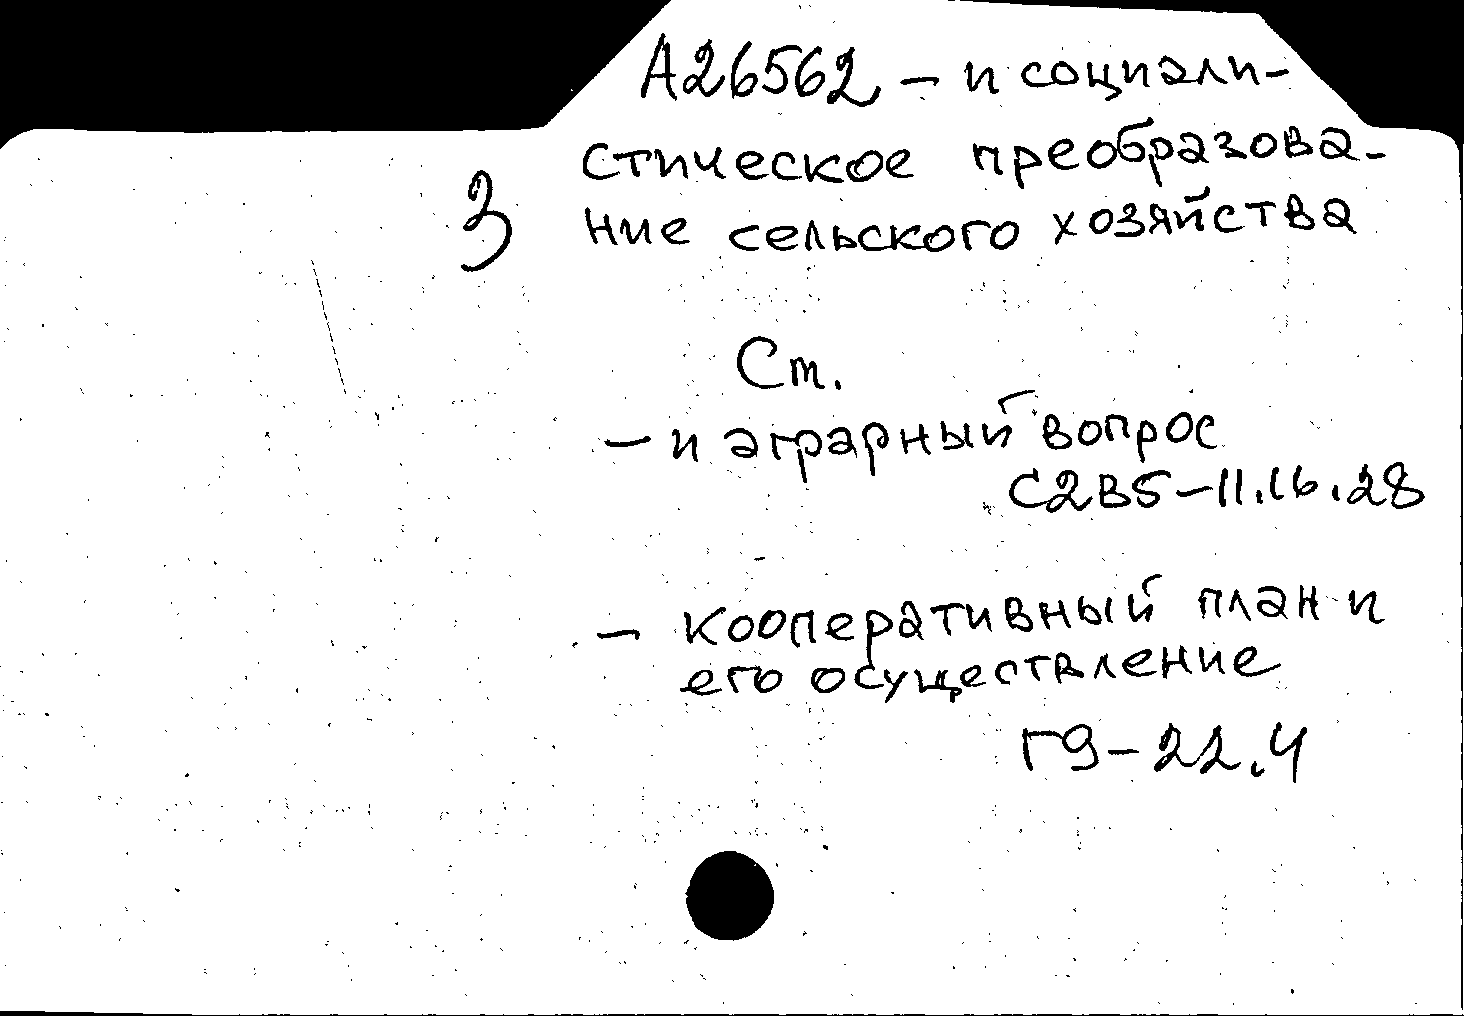 А26562 – и социали-
стическое преобразова-
3 ние сельского хозяйства
Ст.
– и аграрный вопрос
С2В5–11.16.28
– кооперативный план и
его осуществление
Г9–22.4